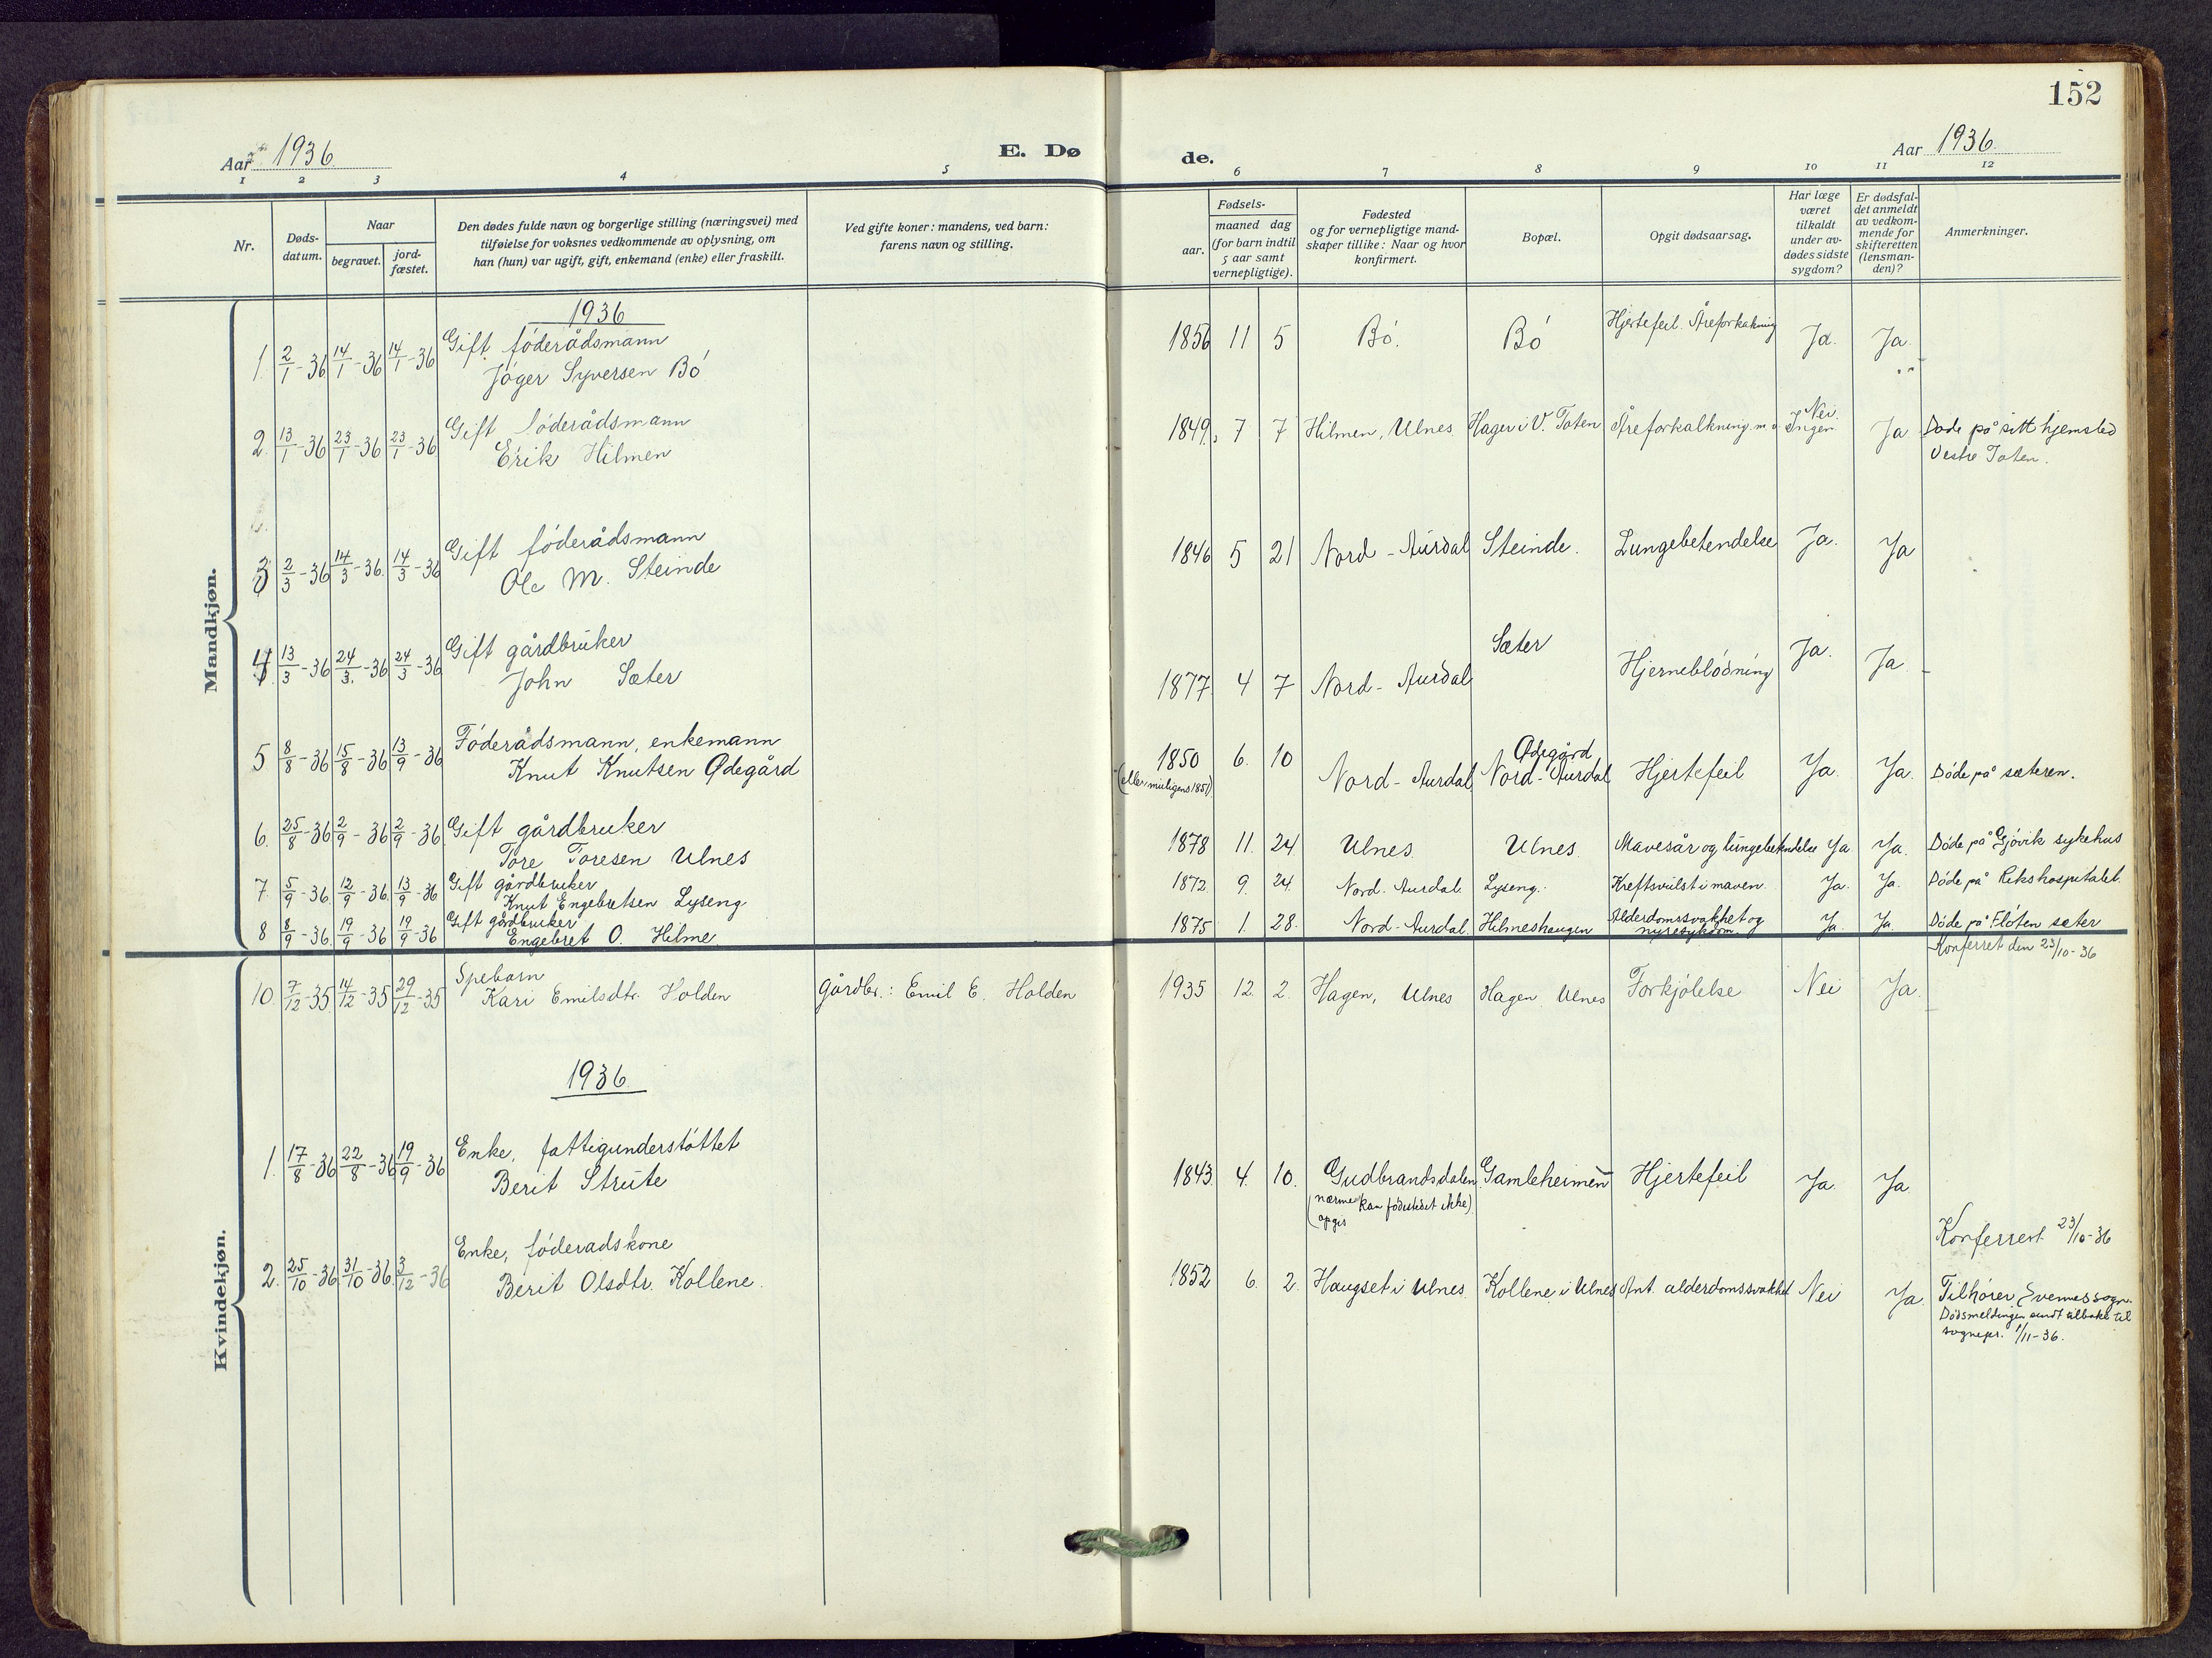 152
Aar 1936
E. Dø
de.
Aar 1936.
1 2 3 4 5 6 7 8 9 10 11 12
Nr.
Døds-
datum.
Naar
begravet.
jord-
fæstet.
Den dødes fulde navn og borgerlige stilling (næringsvei) med
tilføielse for voksnes vedkommende av oplysning, om
han (hun) var ugift, gift, enkemand (enke) eller fraskilt.
Ved gifte koner: mandens, ved barn:
farens navn og stilling.
Fødsels-
aar.
maaned dag
(for barn indtil
5 aar samt
vernepligtige).
Fødested
og for vernepligtige mand-
skaper tillike: Naar og hvor
konfirmert.
Bopæl.
Opgit dødsaarsag.
Har læge
været
tilkaldt
under av-
dødes sidste
sygdom?
Er dødsfal-
det anmeldt
av vedkom-
mende for
skifteretten
(lensman-
den)?
Anmerkninger.
Mandkjøn.
1936
1. 2/1-36 14/1-36 14/1-36 Gift føderådsmann
Jøger Syversen Bø
1856 11 5 Bø. Bø Hjertefeil. Åreforkalkning Ja. Ja.
2. 13/1-36 23/1-36 23/1-36 Gift føderådsmann
Erik Hilmen
1849. 7 7 Hilmen, Ulnes Hager i V. Toten Åreforkalkning m Nei. Ingen. Ja Døde på sitt hjemsted
Vestre Toten.
3 2/3-36 14/3-36. 14/3-36 Gift føderådsmann
Ole M. Steinde
1846 5 21 Nord-Aurdal Steinde. Lungebetendelse Ja. Ja
4 13/3-36 24/3.-36 24/3-36 Gift gårdbruker
John Sæter
1877 4 7 Nord-Aurdal Sæter Hjerneblødning Ja. Ja
5 8/8-36 15/8-36 13/9-36 Føderådsmann, enkemann
Knut Knutsen Ødegård
1850 6. 10 Nord-Aurdal Ødegård
Nord-Aurdal Hjertefeil Ja. Ja. Døde på sæteren.
(eller muligens 1851)
6. 25/8-36 2/9-36 2/9-36 Gift gårdbruker
Tore Toresen Ulnes
1878 11. 24 Ulnes. Ulnes. Mavesår og lungebetendelse Ja Ja. Døde på Gjøvik sykehus
7. 5/9-36 12/9-36 13/9-36 Gift gårdbruker
Knut Engebretsen Lyseng
1872 9. 24. Nord-Aurdal Lyseng. Kreftsvulst i maven. Ja. Ja. Døde på Rikshospitalet.
8 8/9-36. 19/9-36 19/9-36 Gift gårdbruker
Engebret O. Hilme
1875 1. 28. Nord-Aurdal Hilmeshaugen Alderdomssvakhet og
nyresykdom. Ja. Ja. Døde på Fløten sæter
Konferret den 23/10-36
Kvindekjøn.
10. 7/12-35. 14/12-35 29/12-35 Spebarn
Kari Emilsdtr. Holden gårdbr.: Emil E. Holden
1935 12. 2. Hagen, Ulnes Hagen Ulnes Forkjølelse Nei Ja.
1936.
1. 17/8-36 22/8-36 19/9-36 Enke, fattigunderstøttet
Berit Strute
1843 4. 10. Gudbrandsdalen Gamleheimen Hjertefeil Ja. Ja
(nærmere kan fødestedet ikke)
opgis
Konferrert 23/10-36
2. 25/10-36 31/10-36. 3/12-36 Enke, føderadskone
Berit Olsdtr. Kollene.
1852 6. 2. Haugset i Ulnes. Kollene i Ulnes Ant. alderdomssvakhet Nei Ja. Tilhører Svennes sogn.
Dødsmeldingen sendt tilbake til
sognepr. 1/11-36.